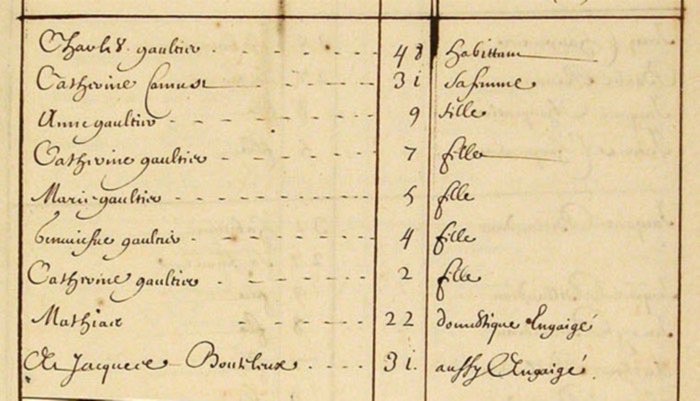 Charles gaultier 48 habittant
Catherine Camust 31 sa femme
Anne gaultier 9 fille
Catherine gaultier 7 fille
Marie gaultier 5 fille
genuiefue gaultier 4 fille
Catherine gaultier 2 fille
Mathias 22 domestique Engaigé
Et Jacquece Bouteleux 31. aussy Engaigé